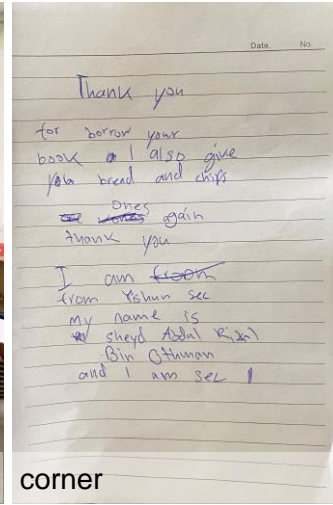 Date. No.
Thank you
for borrow your
book I also give
you bread and chips
ones again
thank you
I am
from Yshun sec
my name is
sheyd Abdul Rizal
Bin Othman
and I am sec 1
corner